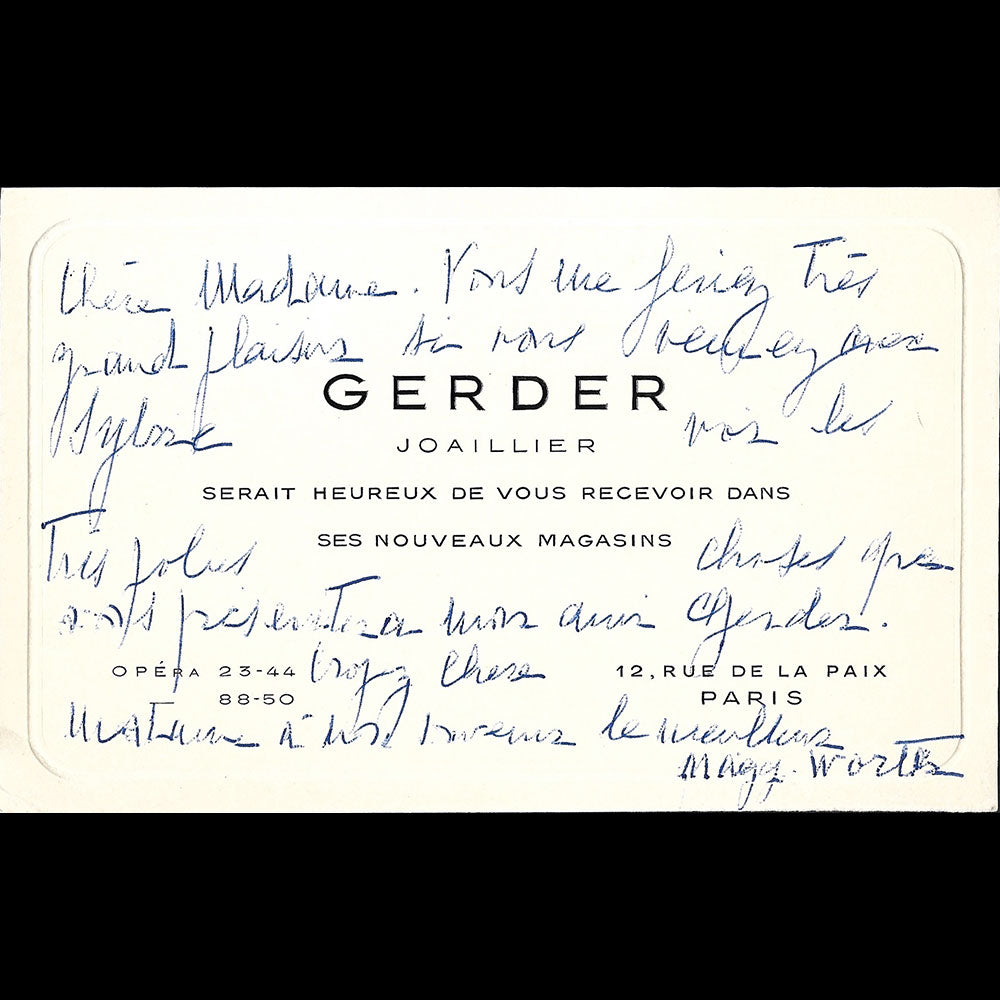 Chère Madame. Vous me feriez Très
grand plaisir si vous veniez avec
GERDER
Sylvie voir les
JOAILLIER
SERAIT HEUREUX DE VOUS RECEVOIR DANS
SES NOUVEAUX MAGASINS
Très jolies choses que
vous présentera mon ami Gerder.
OPÉRA 23-44 Croyez Chère 12, RUE DE LA PAIX
88-50 PARIS
Madame à mes souvenirs les meilleurs
Magy.